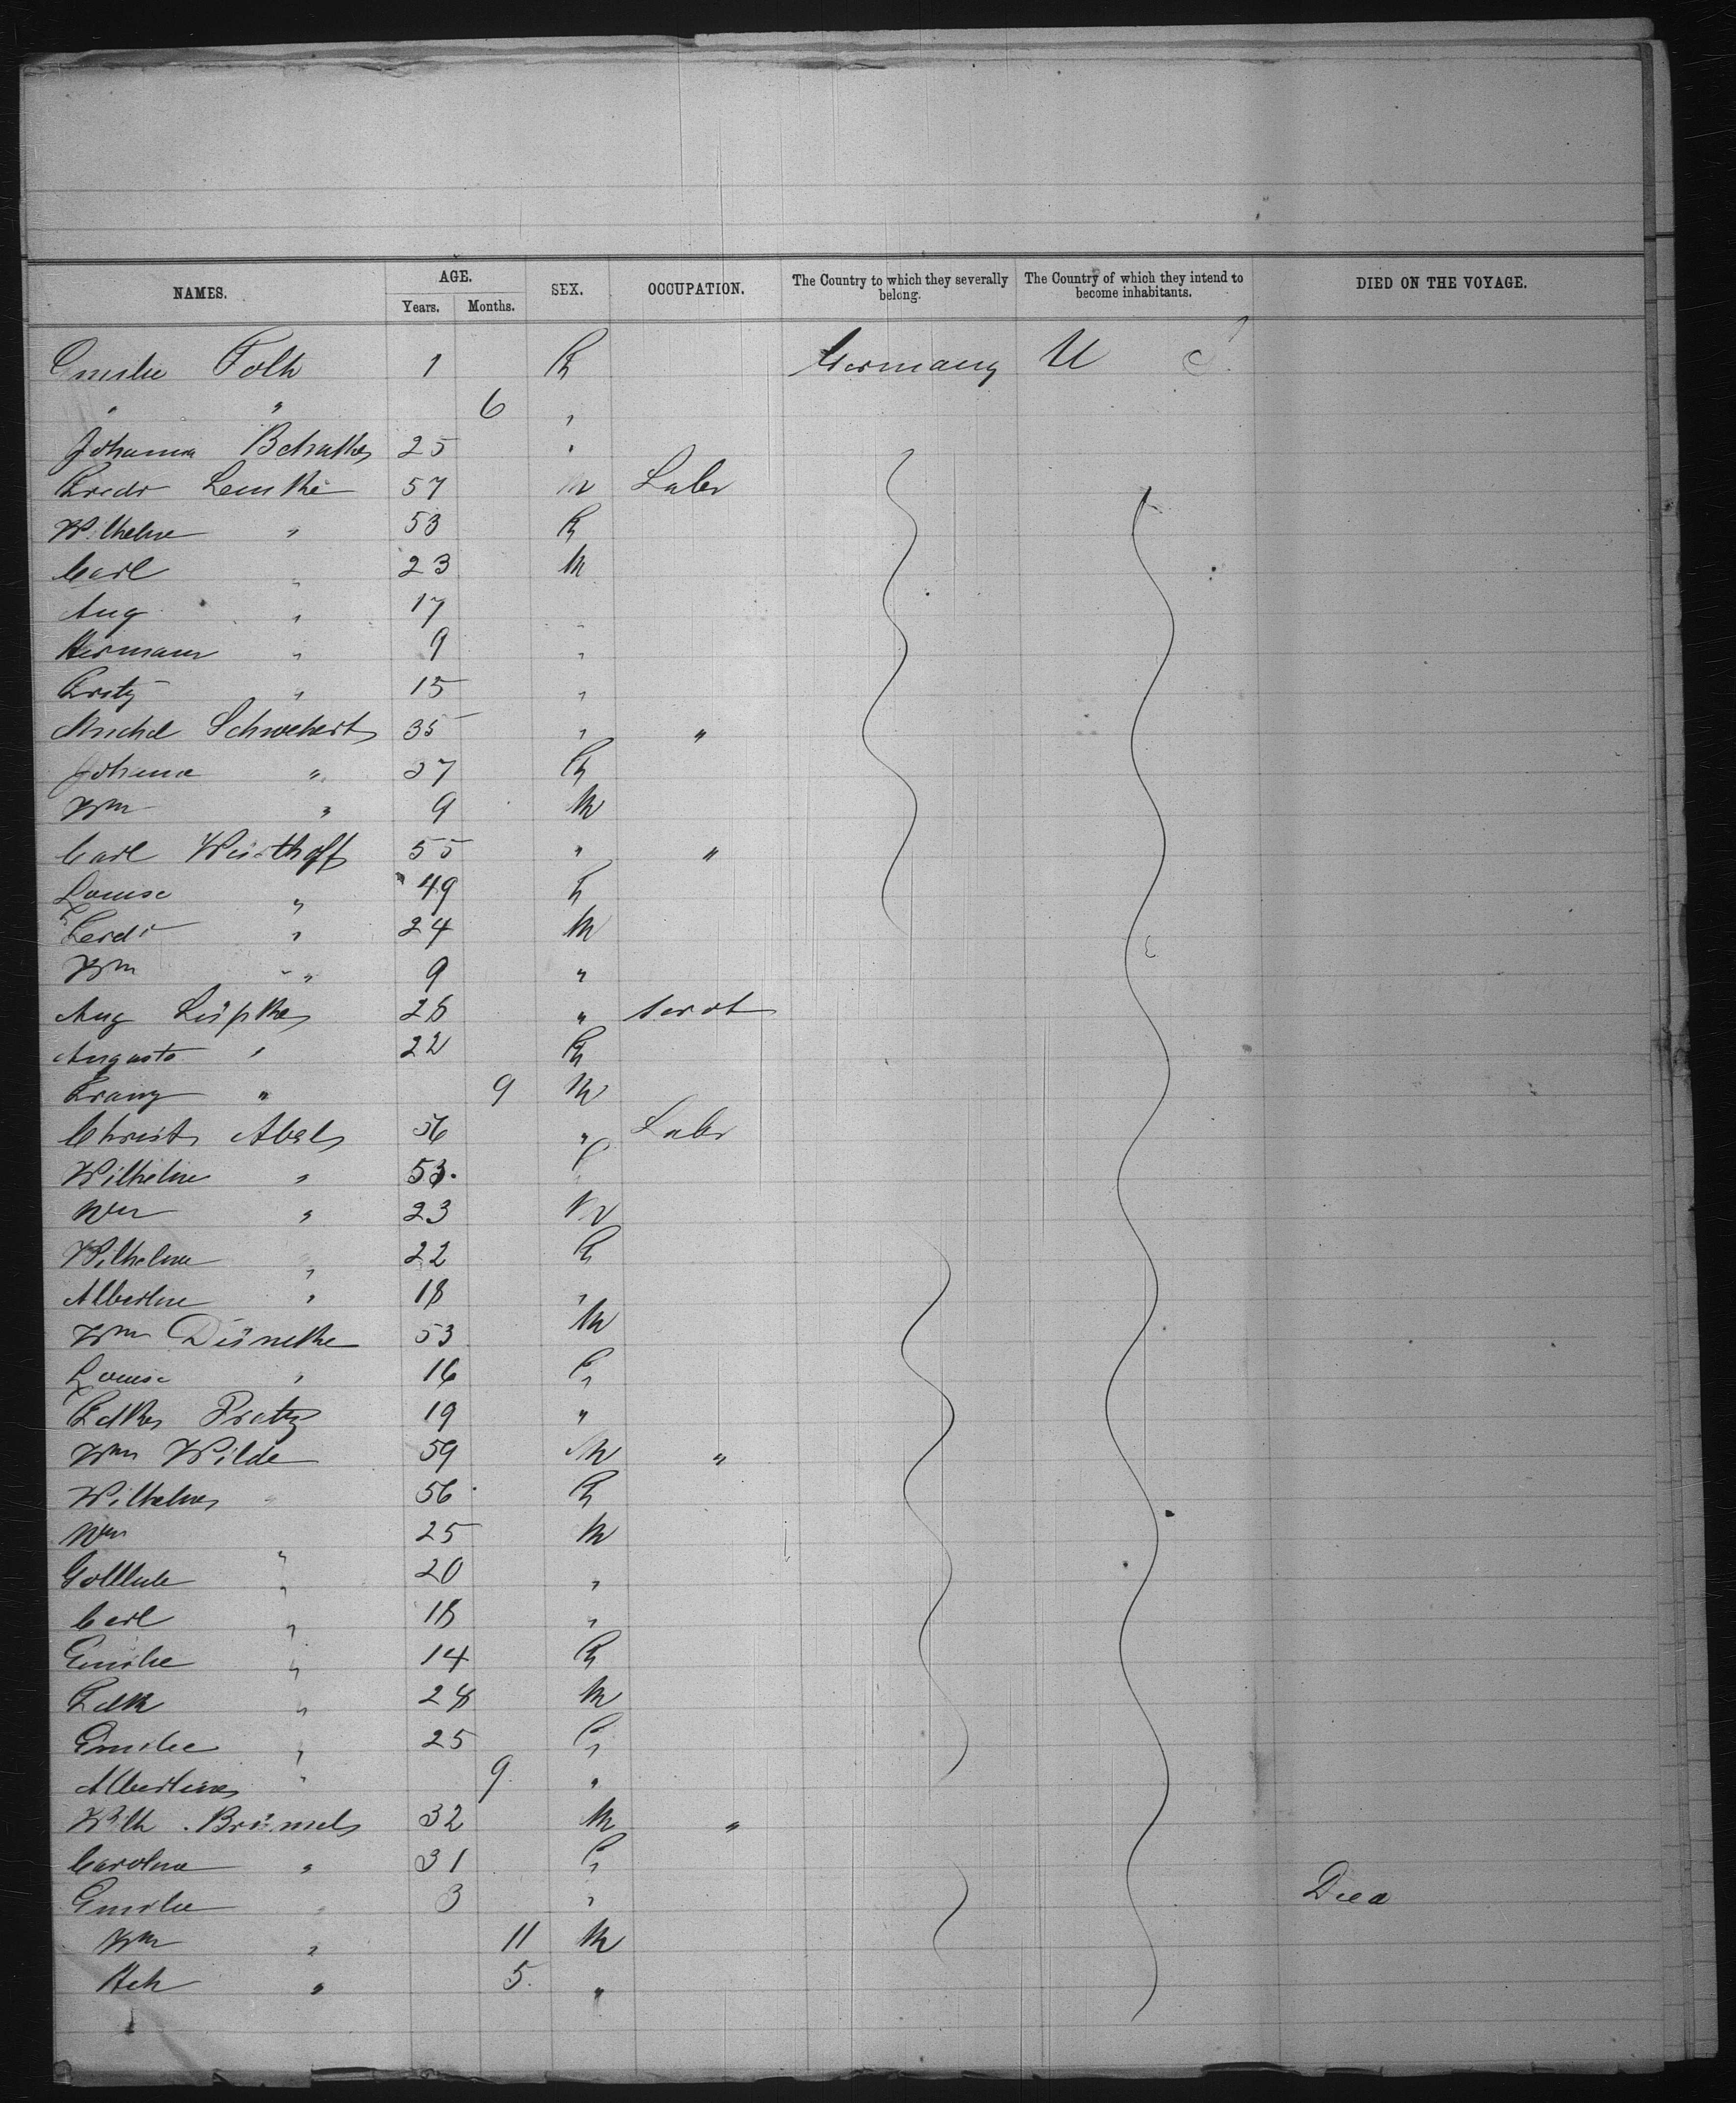 NAMES. AGE. SEX. OCCUPATION. The Country to which they severally belong. The Country of which they intend to become inhabitants. DIED ON THE VOYAGE.
Years. Months.
Emilie Folk 1 F Germany U S
" " 6 "
Johanna 25 "
Fredr Lemke 57 M Labr
Wilhelme " 53 F
Carl " 23 M
Aug " 17 "
Hermann " 9 "
Fritz " 15 "
Michel Schwebert 35 " "
Johanna " 27 F
Wm " 9 M
Carl 55 " "
Louise " 49 F
Ferdr " 24 M
Wm " 9 "
Aug Lüpke 26 "
Augusta " 22 F
Franz " 9 M
Christ Abel 56 " Labr
Wilhelme " 53. F
Wm " 23 M
Wilhelme " 22 F
Albertine " 18 "
Wm Dünelke 53 M
Louise " 16 F
19 "
Wm Wilde 59 M "
Wilhelme " 56 F
Wm " 25 M
Gottlieb " 20 "
Carl " 18 "
Emilie " 14 F
" 28 M
Emilie " 25 F
Albertine " 9 "
Wilh 32 M "
Carolina " 31 F
Emilie " 3 " Died
Wm " 11 M
Hch " 5. "